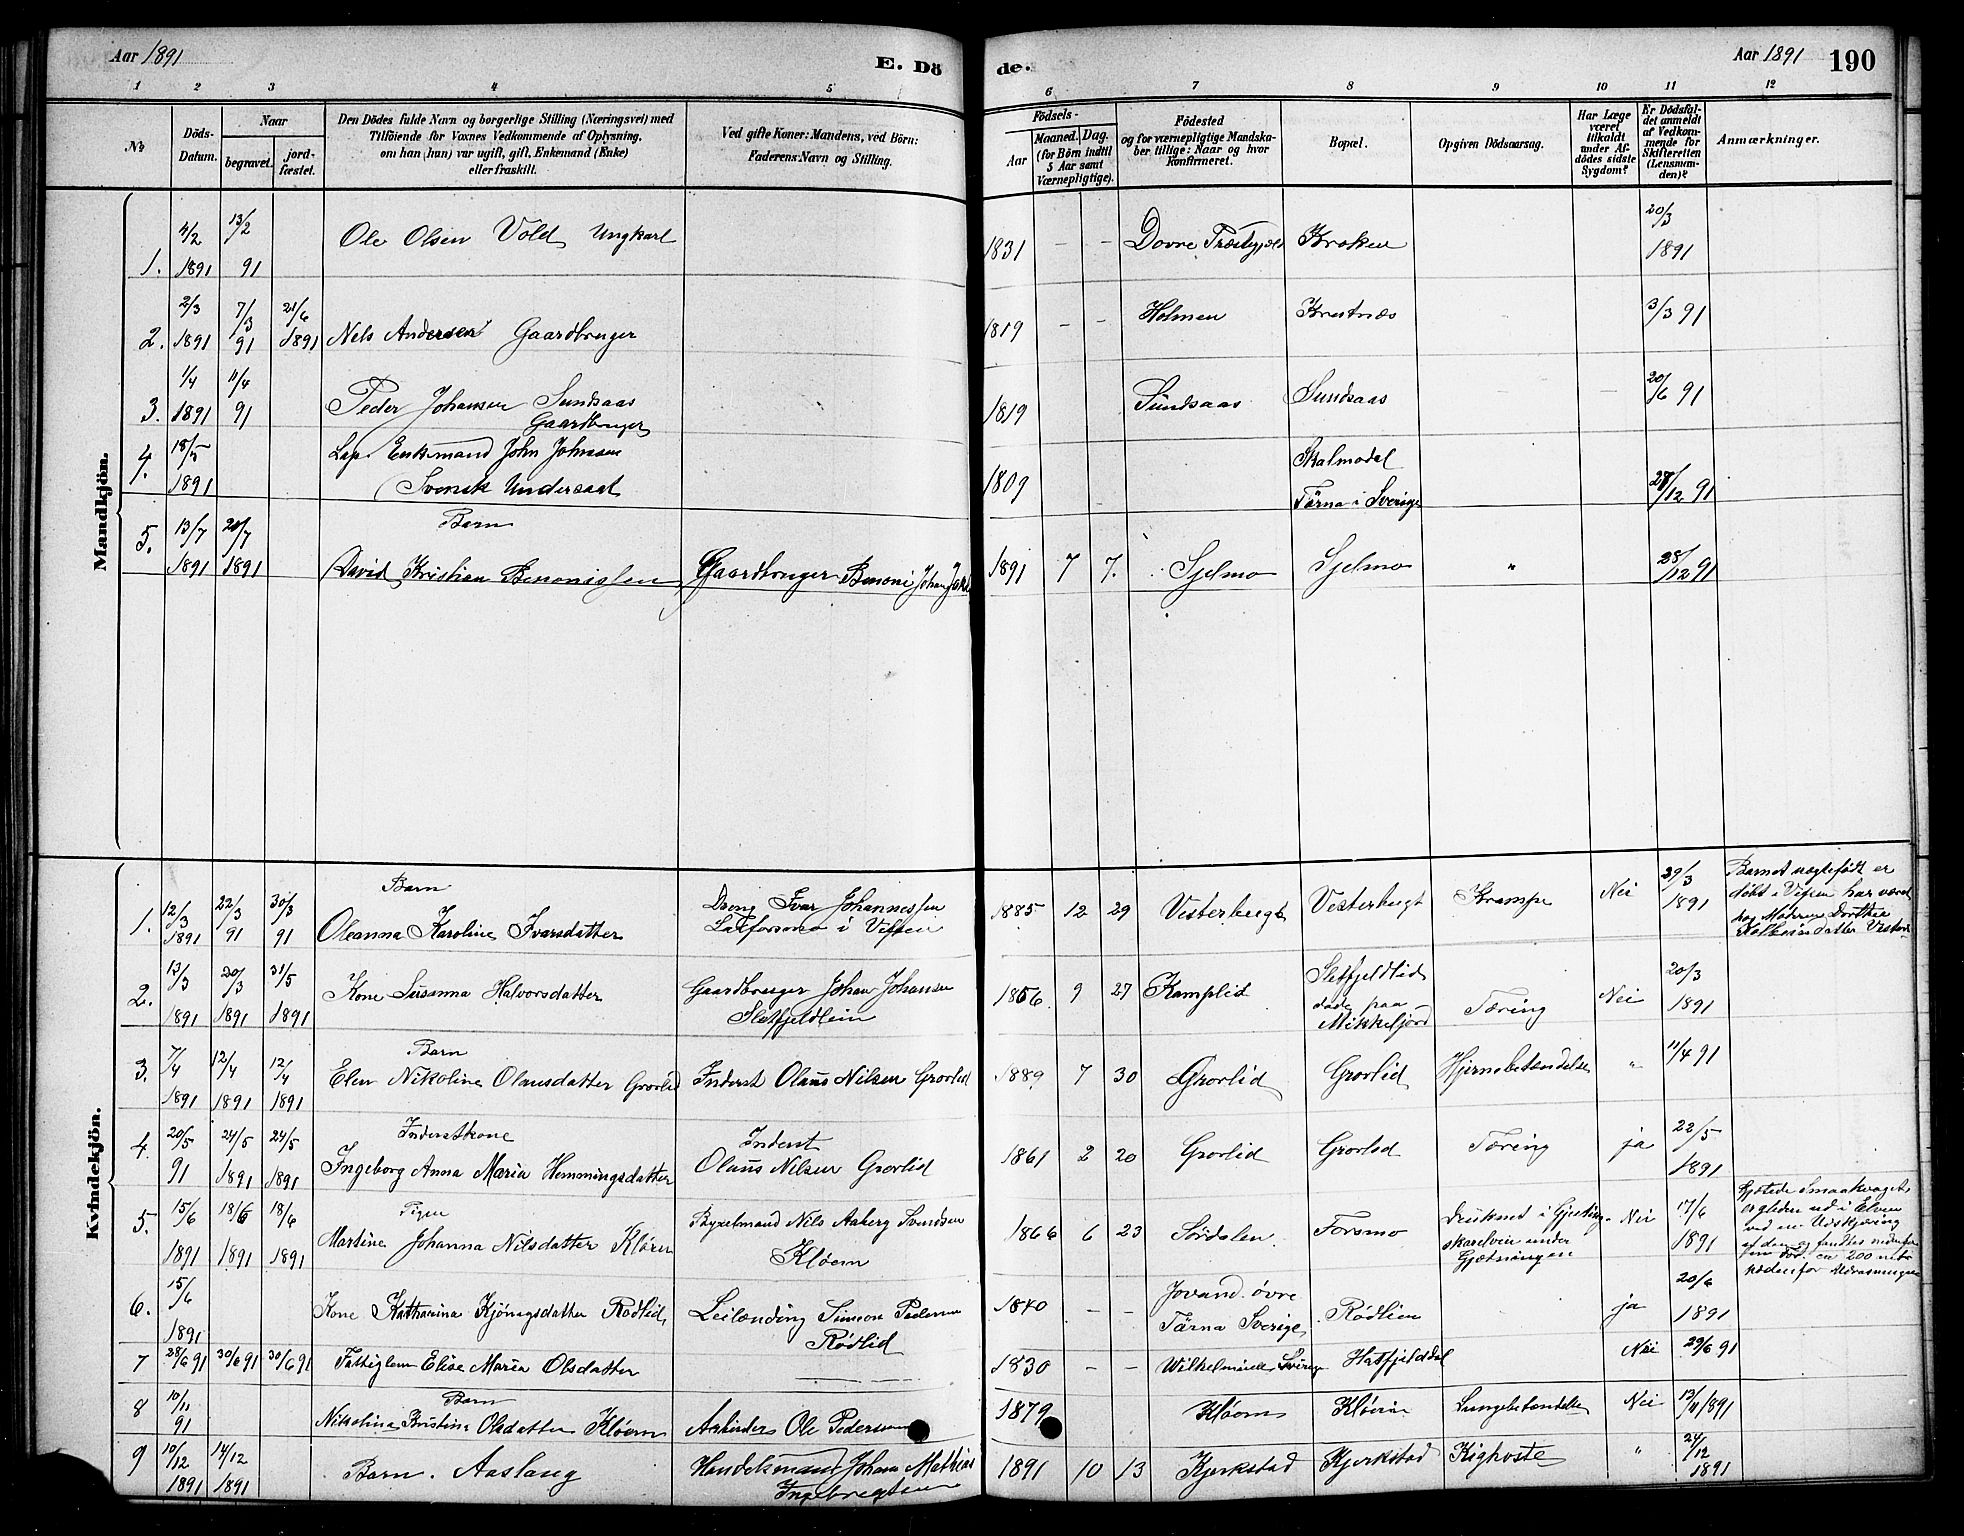 Aar 1891
E. Dö de.
Aar 1891 190
1 2 3 4 5 6 7 8 9 10 11 12
No
Döds-Datum.
Naar
begravet.
jordfæstet.
Den Dödes fulde Navn og borgerlige Stilling (Næringsvei) med
Tilföiende for Voxnes Vedkommende af Oplysning,
om han (hun) var ugift, gift, Enkemand (Enke)
eller fraskilt.
Ved gifte Koner: Mandens, ved Börn:
Faderens Navn og Stilling.
Födsels-
Aar
Maaned. Dag.
(for Börn indtil
5 Aar samt
Værnepligtige).
Födested
og for værnepligtige Mandska-
ber tillige: Naar og hvor
Konfirmeret.
Bopæl.
Opgiven Dödsaarsag.
Har Læge
været
tilkaldt
under Af-
dödes sidste
Sygdom?
Er Dödsfal-
det anmeldt
af Vedkom-
mende for
Skifteretten
(Lensman-
den)?
Anmærkninger.
Mandkjön.
1. 4/2 1891 13/2 91 Ole Olsen Vold Ungkarl 1831 - - Dovre Kroken 20/3 1891
2. 2/3 1891 7/3 91 21/6 1891 Nels Andersen Gaardbruger 1819 - - Holmen Krestnæs 3/3 91
3. 1/4 1891 11/4 91 Peder Johansen Sundsaas Gaardbruger 1819 Sundsaas Sundsaas 20/6 91
4. 18/5 1891 Lap. Enkemand John Johnsen
Svensk Undersaat 1809 Skalmodal
Tärna i Sverige 28/12 91
5. 13/7 1891 20/7 1891 Barn
David Kristian Benonisen Gaardbruger Benoni Johan 1891 7 7. Sjelmo Sjelmo " 28/12 91
Kvindekjön.
1. 12/3 1891 22/3 91 30/3 91 Barn
Oleanna Karoline Ivarsdatter Dreng Ivar Johannessen
Laxforsmo i Vefsen 1885 12 29 Vesterbugt Vesterbugt Krampe Nei 29/3 1891 Barnet uægtefödt er
döbt i Vefsen har været
hos Moderen Dorthea
2. 13/3 1891 20/3 1891 31/5 1891 Kone Susanna Halvorsdatter Gaardbruger Johan Johansen
Sletfjeldlien 1856 9 27 Kamplid Sletfjeldlid
döde paa
Mikkeljord Tæring Nei 20/3 1891
3. 7/4 1891 12/4 1891 12/4 1891 Barn
Elen Nikoline Olausdatter Grovlid Inderst Olaus Nilsen Grovlid 1889 7 30 Grovlid Grovlid Hjernebetændelse " 11/4 91
4. 20/5 91 24/5 1891 24/5 1891 Inderstkone
Ingeborg Anna Maria Hemmingsdatter Inderst
Olaus Nilsen Grovlid 1861 2 20 Grovlid Grovlid Tæring ja 22/5 1891
5. 15/6 1891 18/6 1891 18/6 1891 Pigen
Martine Johanna Nilsdatter Kløven Byxelmand Nils Aaberg Svendsen
Kløvem 1866 6 23 Sördalen Forsmo druknet i
skarelven under
Gjætningen Nei 17/6 1891 Gjætede Smaakvaget,
ergleden ud i Elven
ved en Udskjæring
af den og fandtes nedenfor
ca 200 metr
nedenfor
6. 15/6 1891 Kone Katharina Kjöningsdatter Rödlid Leilænding Simon Pedersen
Rødlid 1840 - - Jovand. övre
Tärna Sverige Rødlien ja 20/6 1891
7 28/6 91 30/6 91 30/6 91 Fattiglem Elise Maria Olsdatter 1830 - - Wilhelmina Sverige Hatfjelddal Nei 29/6 91
8 10/11 91 Barn
Nikolina Kristina Olsdatter Kløvem Arbeider Ole Pedersen 1879 Kløvem Kløvem Lungebetændelse Nei 13/11 1891
9 10/12 1891 14/12 1891 Barn. Aaslaug Handelsmand Johan Mathias
Ingebregtsen 1891 10 13 Kjerkstad Kjerkstad Kighoste " 24/12 1891